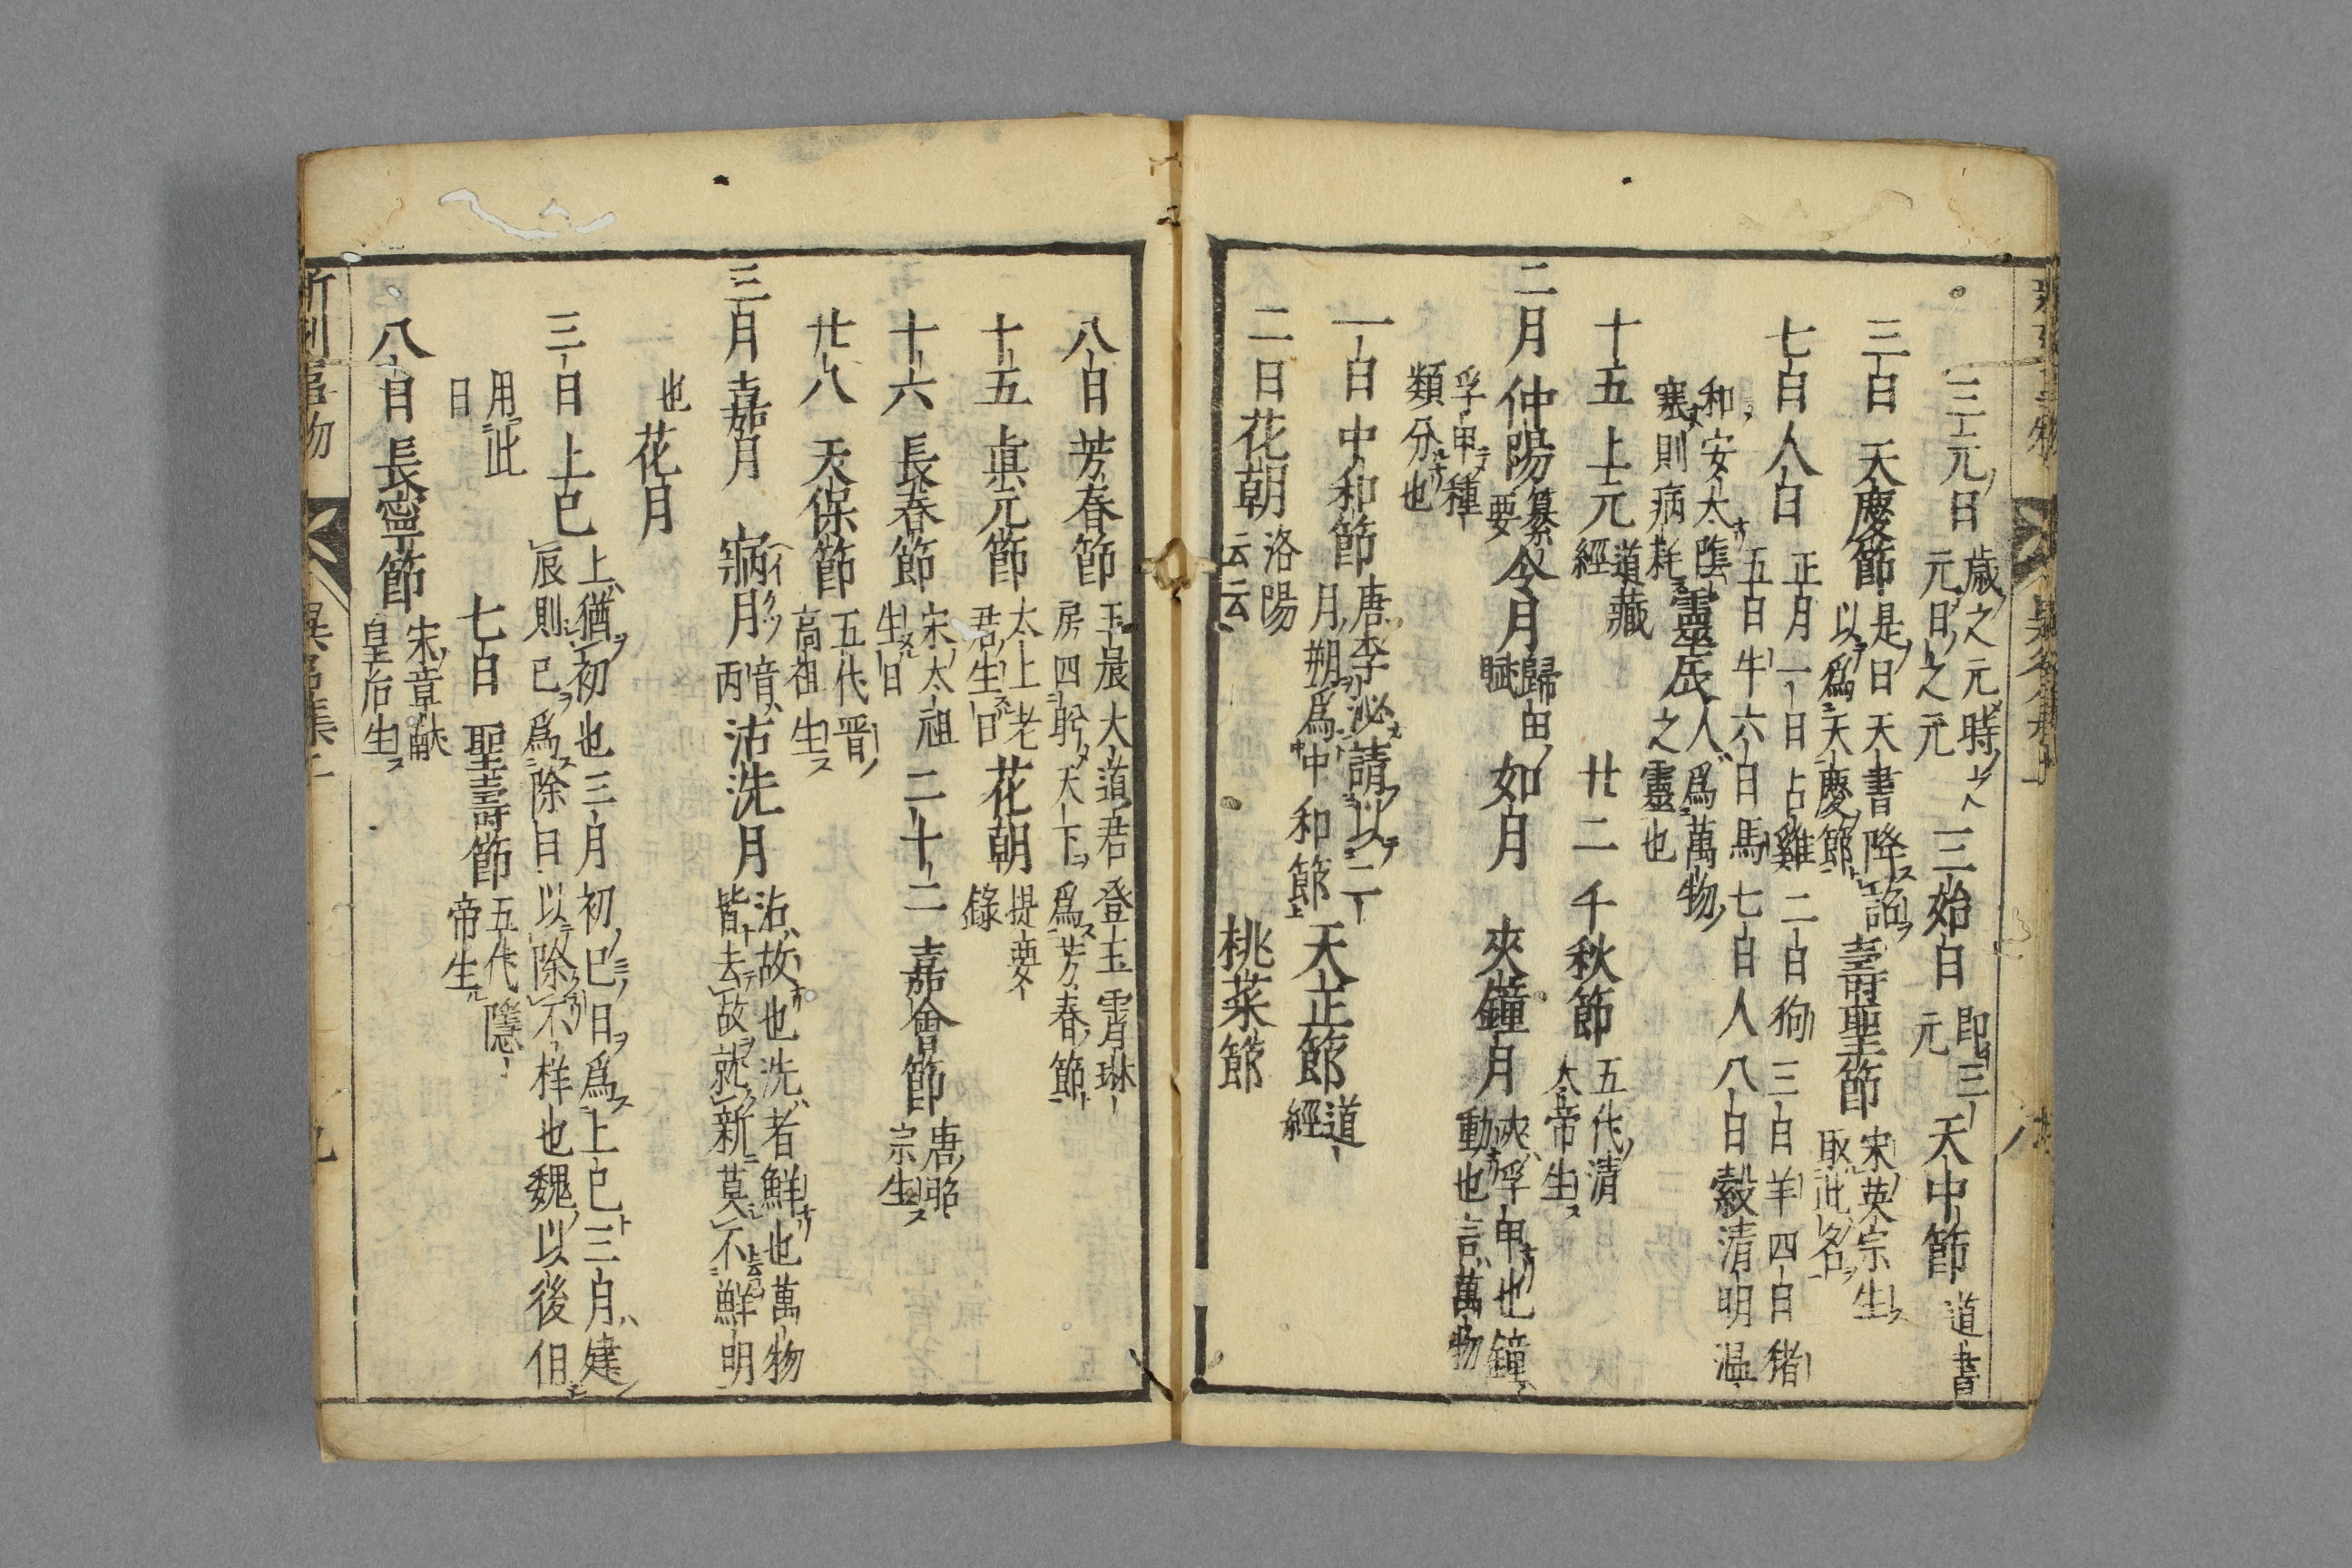 三元日 歳之元時之元日之元 三始日 即三元 天中節 道書
三日 天慶節 是日天書降詔以爲天慶節 壽聖節 宋英宗生取此名
七日 人日 正月一日占雞二日狗三日羊四日猪五日牛六日馬七日人八日穀清明温
和安太陰寒則病耗 靈辰 人爲萬物之靈也
十五 上元 道藏經 廿二 千秋節 五代清太帝生
二月 仲陽 纂要 令月 歸田賦 如月 夾鐘月 夾孚甲也鐘動也言萬物
孚甲種類分也
一日 中和節 唐李泌請以二月朔爲中和節 天正節 道經
二日 花朝 洛陽云云 挑菜節
八日 芳春節 玉晨大道君登玉霄琳房四盻天下爲芳春節
十五 眞元節 太上老君生日 花朝 提要錄
十六 長春節 宋太祖生日 二十二 嘉會節 唐昭宗生
廿八 天保節 五代晋高祖生
三月 嘉月 寎月 音丙 沽洗月 沽故也洗者鮮也萬物皆去故就新莫不鮮明
也 花月
三日 上巳 上猶初也三月初巳日爲上巳三月建辰則巳爲除日以除不样也魏以後但
用此日 七日 聖壽節 五代隱帝生
八日 長寧節 宋章獻皇后生
新刻事物異名集上
九